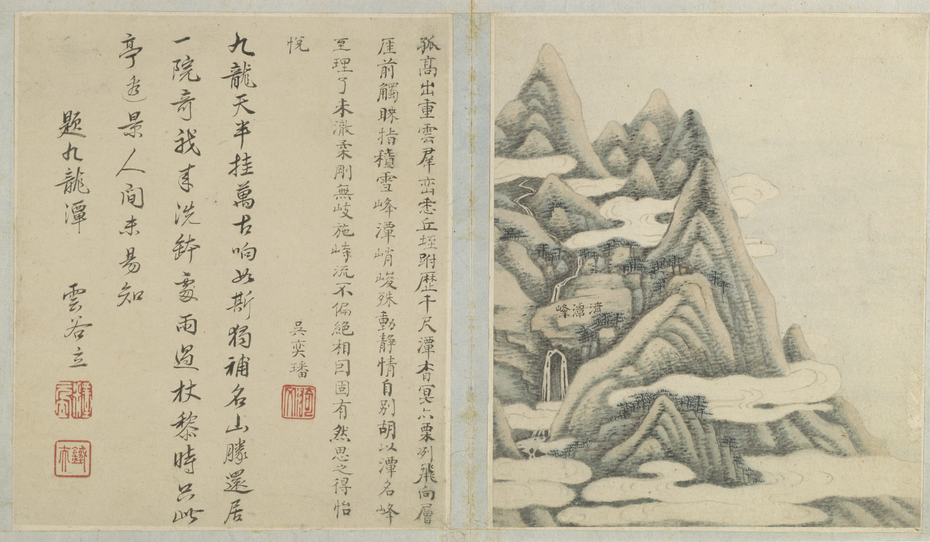 孤高出重雲羣峦悉丘垤附歷千尺潭杳冥六栗冽飛向層
厓前觸睞指積雪峰潭峭峻殊動靜情自別胡以潭名峰
至理了未澈柔剛無岐施峙流不偏絕相因固有然思之得怡
悅
吳奕璠
九龍天半挂萬古响如斯獨補名山勝還居
一院奇我來洗鉢處雨過杖黎時只此
亭邊景人間未易知
題九龍潭 雲谷立
濟潭峰